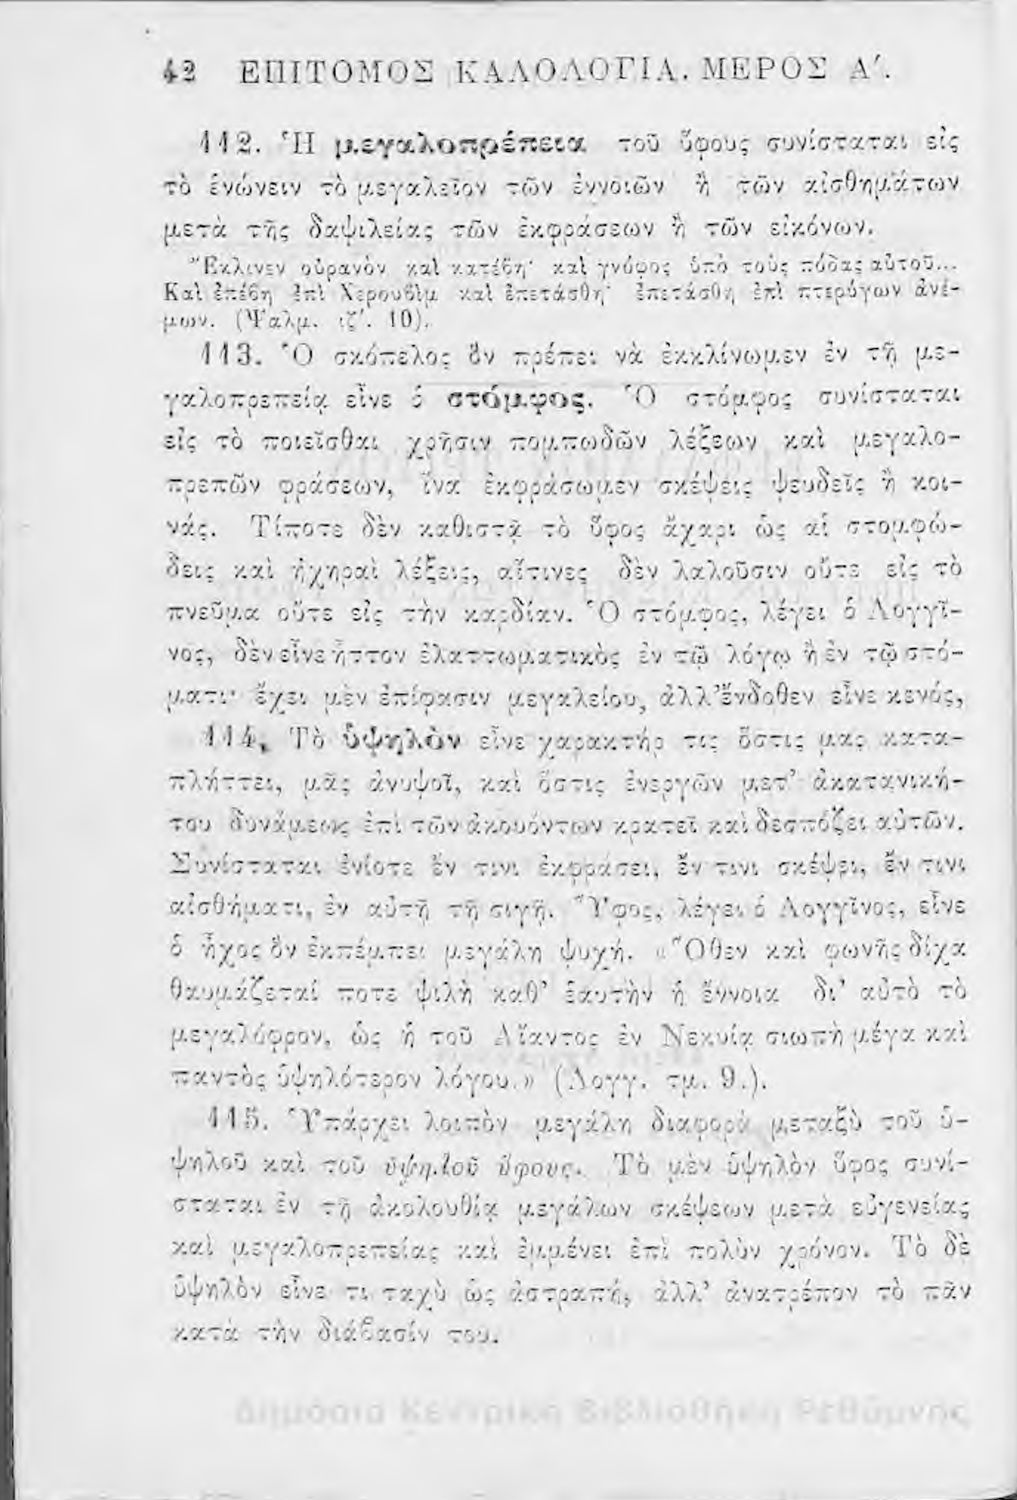 42 ΕΠΙΤΟΜΟΣ ΚΑΛΟΛΟΓΙΑ. ΜΕΡΟΣ Α΄.
112. Ἡ μεγαλοπρέπεια τοῦ ὕφους συνίσταται εἰς
τὸ ἑνώνειν τὸ μεγαλεῖον τῶν ἐννοιῶν ἢ τῶν αἰσθημάτων
μετὰ τῆς δαψιλείας τῶν ἐκφράσεων ἢ τῶν εἰκόνων.
Ἔκλινεν οὐρανὸν καὶ κατέβη· καὶ γνόφος ὑπὸ τοὺς πόδας αὐτοῦ...
Καὶ ἐπέβη ἐπὶ Χερουβὶμ καὶ ἐπετάσθη· ἐπετάσθη ἐπὶ πτερύγων ἀνέ-
μων. (Ψαλμ. ιζ΄. 10).
113. Ὁ σκόπελος ὃν πρέπει νὰ ἐκκλίνωμεν ἐν τῇ με-
γαλοπρεπείᾳ εἶνε ὁ στόμφος. Ὁ στόμφος συνίσταται
εἰς τὸ ποιεῖσθαι χρῆσιν πομπωδῶν λέξεων καὶ μεγαλο-
πρεπῶν φράσεων, ἵνα ἐκφράσωμεν σκέψεις ψευδεῖς ἢ κοι-
νάς. Τίποτε δὲν καθιστᾷ τὸ ὕφος ἄχαρι ὡς αἱ στομφώ-
δεις καὶ ἠχηραὶ λέξεις, αἵτινες δὲν λαλοῦσιν οὔτε εἰς τὸ
πνεῦμα οὔτε εἰς τὴν καρδίαν. Ὁ στόμφος, λέγει ὁ Λογγῖ-
νος, δὲν εἶνε ἧττον ἐλαττωματικὸς ἐν τῷ λόγῳ ἢ ἐν τῷ στό-
ματι· ἔχει μὲν ἐπίφασιν μεγαλείου, ἀλλ' ἔνδοθεν εἶνε κενός,
114. Τὸ ὑψηλὸν εἶνε χαρακτήρ τις ὅστις μας κατα-
πλήττει, μᾶς ἀνυψοῖ, καὶ ὅστις ἐνεργῶν μετ' ἀκατανική-
του δυνάμεως ἐπὶ τῶν ἀκουόντων κρατεῖ καὶ δεσπόζει αὐτῶν.
Συνίσταται ἐνίοτε ἔν τινι ἐκφράσει, ἔν τινι σκέψει, ἔν τινι
αἰσθήματι, ἐν αὐτῇ τῇ σιγῇ. Ὕφος, λέγει ὁ Λογγῖνος, εἶνε
ὁ ἦχος ὃν ἐκπέμπει μεγάλη ψυχή. «Ὅθεν καὶ φωνῆς δίχα
θαυμάζεταί ποτε ψιλὴ καθ' ἑαυτὴν ἡ ἔννοια δι' αὐτὸ τὸ
μεγαλόφρον, ὡς ἡ τοῦ Αἴαντος ἐν Νεκυίᾳ σιωπὴ μέγα καὶ
παντὸς ὑψηλότερον λόγου.» (Λογγ. τμ. 9.).
115. Ὑπάρχει λοιπὸν μεγάλη διαφορὰ μεταξὺ τοῦ ὑ-
ψηλοῦ καὶ τοῦ ὑψηλοῦ ὕφους. Τὸ μὲν ὑψηλὸν ὕφος συνί-
σταται ἐν τῇ ἀκολουθίᾳ μεγάλων σκέψεων μετὰ εὐγενείας
καὶ μεγαλοπρεπείας καὶ ἐμμένει ἐπὶ πολὺν χρόνον. Τὸ δὲ
ὑψηλὸν εἶνε τι ταχὺ ὡς ἀστραπή, ἀλλ' ἀνατρέπον τὸ πᾶν
κατὰ τὴν διάβασίν του.
Δημόσια Κεντρική Βιβλιοθήκη Ρεθύμνης